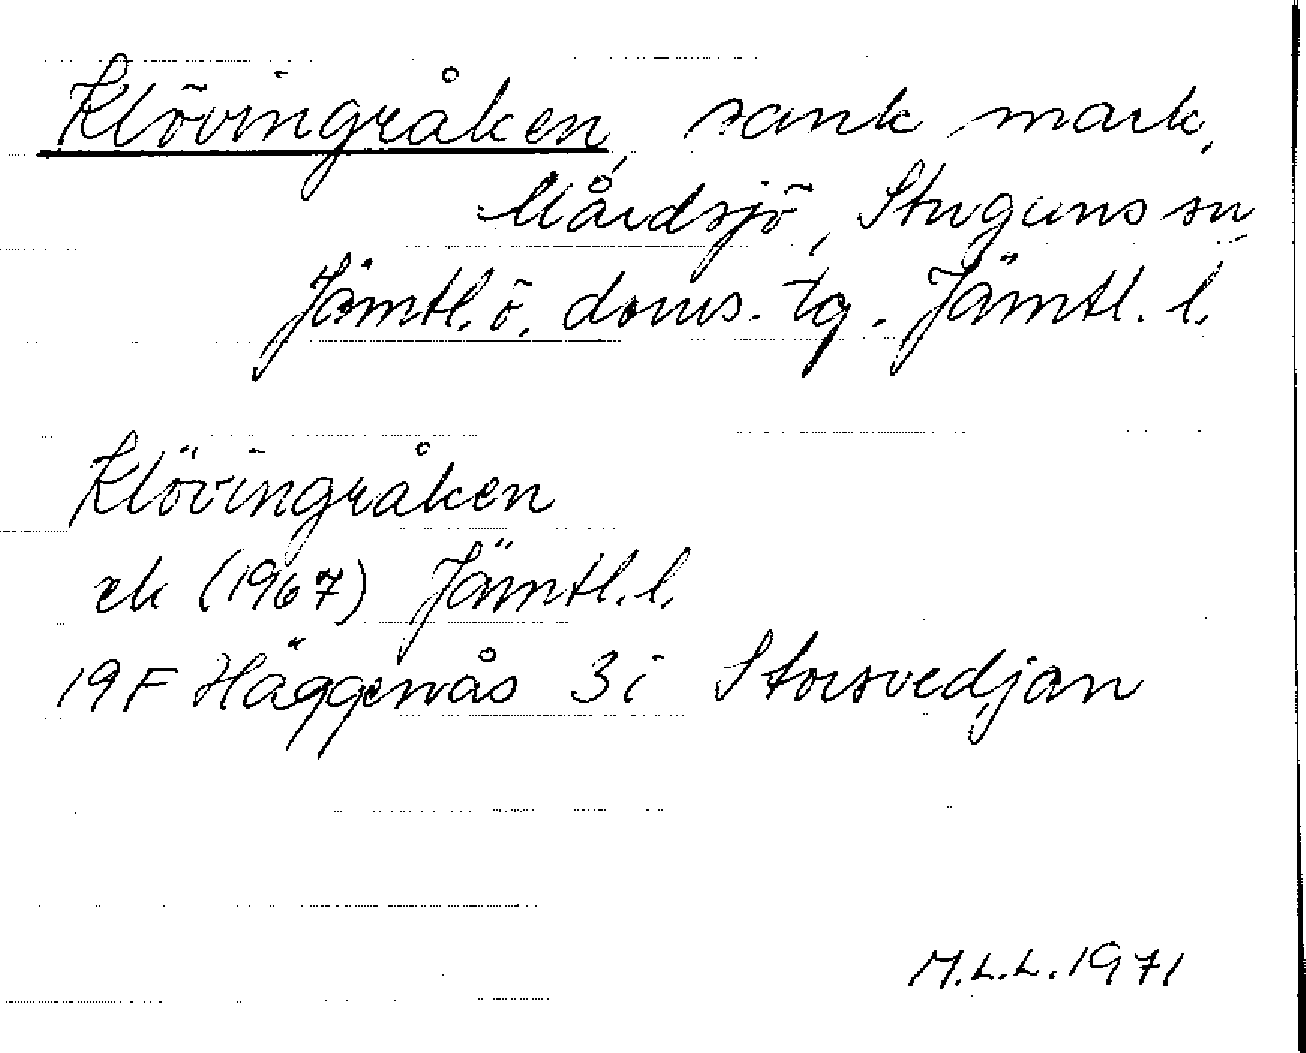 Klövingråken, sank mark,
Mårdsjö, Stuguns sn,
Jämtl. ö. doms. tg. Jämtl. l.
Klövingråken
ek (1967) Jämtl. l.
19F Häggenås 3i Storsvedjan
M.L.L. 1971